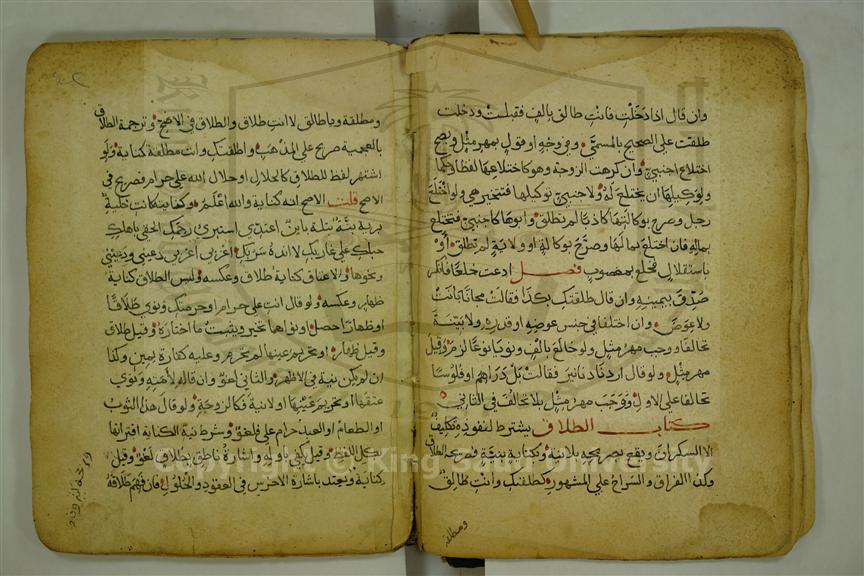 وان قال اذا دخلت فانت طالق بالف فقبلت ودخلت
طلقت على الصحيح بالمسمى وفي وجه او قول بمهر مثل ويصح
اختلاع اجنبي وان كرهت الزوجة وهو كاختلاعها لفظا وحكما
ولوكيلها ان يختلع له ولاجنبي توكيلها فتتخير هي ولو اختلع
رجل وصرح بوكالتها كاذبا لم تطلق وابوها كاجنبي فيختلع
بماله فان اختلع بمالها وصرح بوكالة او ولاية لم تطلق او
باستقلال فخلع بمغصوب فصل ادعت خلعا فانكر
صدق بيمينه وان قال طلقتك بكذا فقالت مجانا بانت
ولا عوض وان اختلفا في جنس عوضه او قدره ولا بينة
تحالفا ووجب مهر مثل ولو خالع بالف ونويا نوعا لزم وقيل
مهر مثل ولو قال اردنا دنانير فقالت بل دراهم او فلوسا
تحالفا على الاول ووجب مهر مثل بلا تحالف في الثاني
كتاب الطلاق يشترط لنفوذه تكليف
الا السكران ويقع بصريحه بلا نية وبكناية بنية فصريحه الطلاق
وكذا الفراق والسراح على المشهور كطلقتك وانت طالق
ومطلقة
ومطلقة ويا طالق لا انت طلاق والطلاق في الاصح وترجمة الطلاق
بالعجمية صريح على المذهب واطلقتك وانت مطلقة كناية ولو
اشتهر لفظ للطلاق كالحلال او حلال الله على حرام فصريح في
الاصح قلت الاصح انه كناية والله اعلم وكنايته كانت خلية
برية بتة بتلة باين اعتدي استبري رحمك الحقي باهلك
حبلك على غاربك لا انده سربك اعزبي اغربي دعيني ودعيني
ونحوها والاعتاق كناية طلاق وعكسه وليس الطلاق كناية
ظهار وعكسه ولو قال انت على حرام او حرمتك ونوى طلاقا
او ظهارا حصل او نواهما تخير ويثبت ما اختاره وقيل طلاق
وقيل ظهار او تحريم عينها لم تحرم وعليه كفارة يمين وكذا
ان لم يكن نية في الاظهر والثاني لغو وان قاله لامته ونوى
عتقها او تحريم عينها او لا نية فكالزوجة ولو قال هذا الثوب
او الطعام او العبد حرام على فلغو وشرط نية الكناية اقترانها
بكل اللفظ وقيل يكفي باوله واشارة ناطق بطلاق لغو وقيل
كناية ويعتد باشارة الاخرس في العقود والحلول فان فهم طلاقه